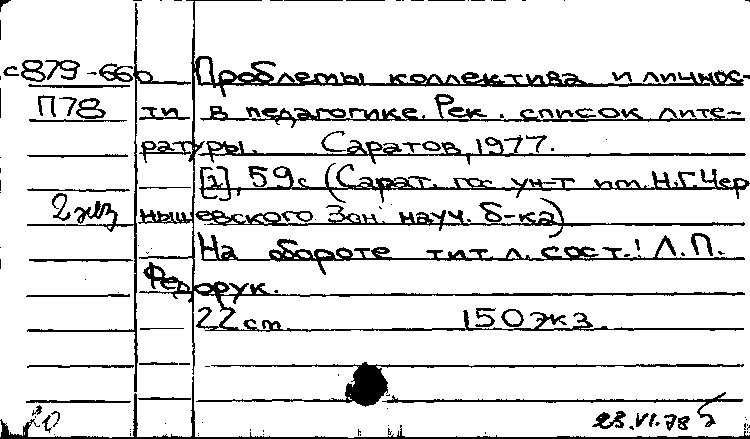 с879-66б Проблемы коллектива и личнос-
П78 ти в педагогике. Рек. список лите-
ратуры. Саратов, 1977.
[1], 59с (Сарат. гос ун-т им. Н.Г. Чер
2 экз нышевского Зон. науч. б-ка)
На обороте тит. л. сост.: Л.П.
Федорук.
22 cm. 150 экз.
20 23.VI.78